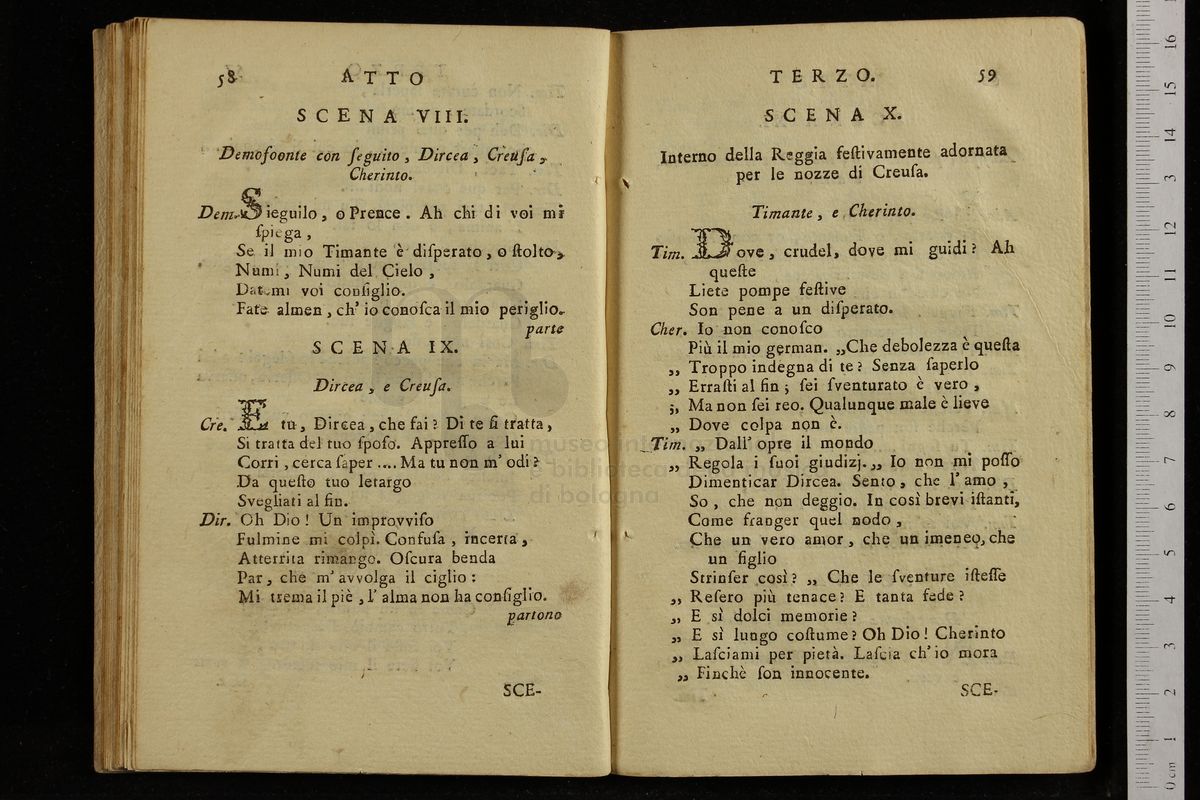 58 ATTO
SCENA VIII.
Demofoonte con ſeguito, Dircea, Creuſa,
Cherinto.
Dem. Sieguilo, o Prence. Ah chi di voi mi
ſpiega,
Se il mio Timante è diſperato, o ſtolto,
Numi, Numi del Cielo,
Datemi voi conſiglio.
Fate almen, ch' io conoſca il mio periglio.
parte
SCENA IX.
Dircea, e Creuſa.
Cre. E tu, Dircea, che fai? Di te ſi tratta,
Si tratta del tuo ſpoſo. Appreſſo a lui
Corri, cerca ſaper .... Ma tu non m' odi?
Da queſto tuo letargo
Svegliati al fin.
Dir. Oh Dio! Un improvviſo
Fulmine mi colpì. Confuſa, incerta,
Atterrita rimango. Oſcura benda
Par, che m' avvolga il ciglio:
Mi trema il piè, l' alma non ha conſiglio.
partono
SCE-
TERZO. 59
SCENA X.
Interno della Reggia feſtivamente adornata
per le nozze di Creuſa.
Timante, e Cherinto.
Tim. Dove, crudel, dove mi guidi? Ah
queſte
Liete pompe feſtive
Son pene a un diſperato.
Cher. Io non conoſco
Più il mio german. „Che debolezza è queſta
„ Troppo indegna di te? Senza ſaperlo
„ Erraſti al fin; ſei ſventurato è vero,
„ Ma non ſei reo. Qualunque male è lieve
„ Dove colpa non è.
Tim. „ Dall' opre il mondo
„ Regola i ſuoi giudizj.„ Io non mi poſſo
Dimenticar Dircea. Sento, che l' amo,
So, che non deggio. In così brevi iſtanti,
Come franger quel nodo,
Che un vero amor, che un imeneo, che
un figlio
Strinſer così? „ Che le ſventure iſteſſe
„ Reſero più tenace? E tanta fede?
„ E sì dolci memorie?
„ E sì lungo coſtume? Oh Dio! Cherinto
„ Laſciami per pietà. Laſcia ch' io mora
„ Finchè ſon innocente.
SCE-
museo inter
biblioteca
di bologna
0 cm 1 2 3 4 5 6 7 8 9 10 11 12 13 14 15 16